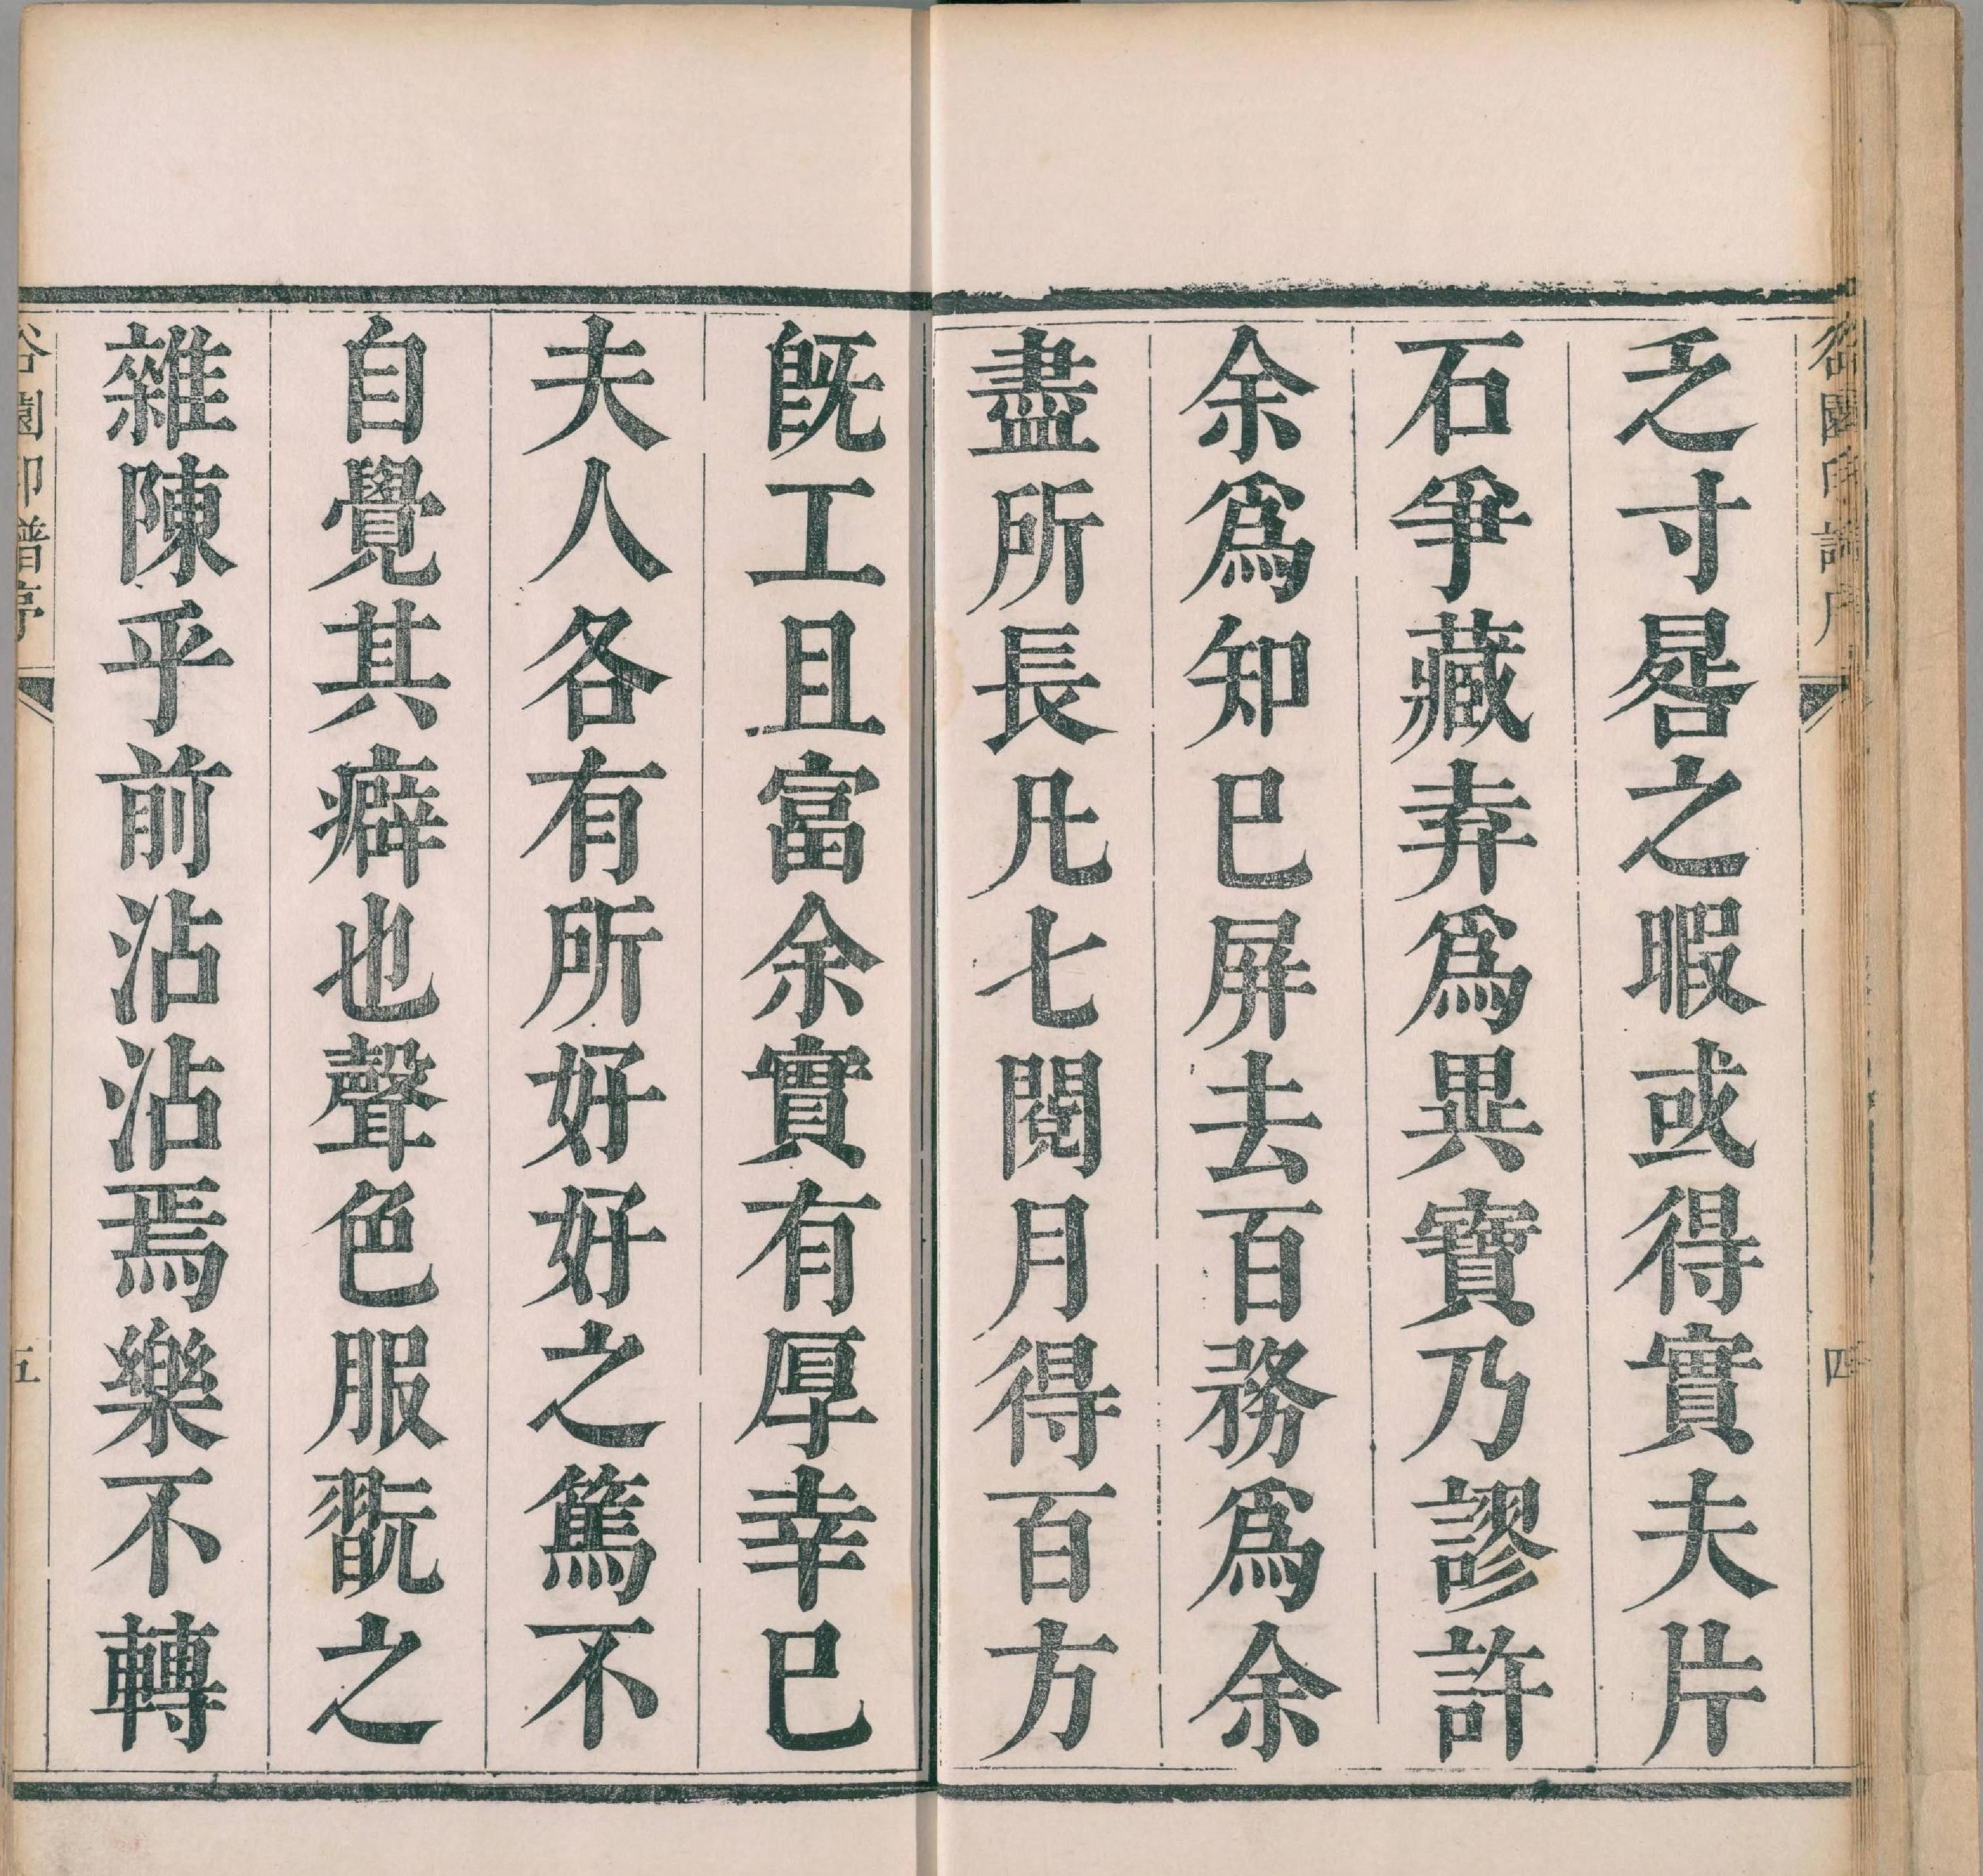 谷園印譜序
四
乏寸晷之暇或得實夫片
石爭藏弆爲異寶乃謬許
余爲知巳屏去百務爲余
盡所長凡七閱月得百方
旣工且富余實有厚幸巳
夫人各有所好好之篤不
自覺其癖也聲色服翫之
雜陳乎前沾沾焉樂不轉
谷園印譜序
五